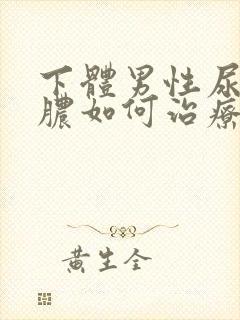 下體男性尿
膿如何治療
黃生全